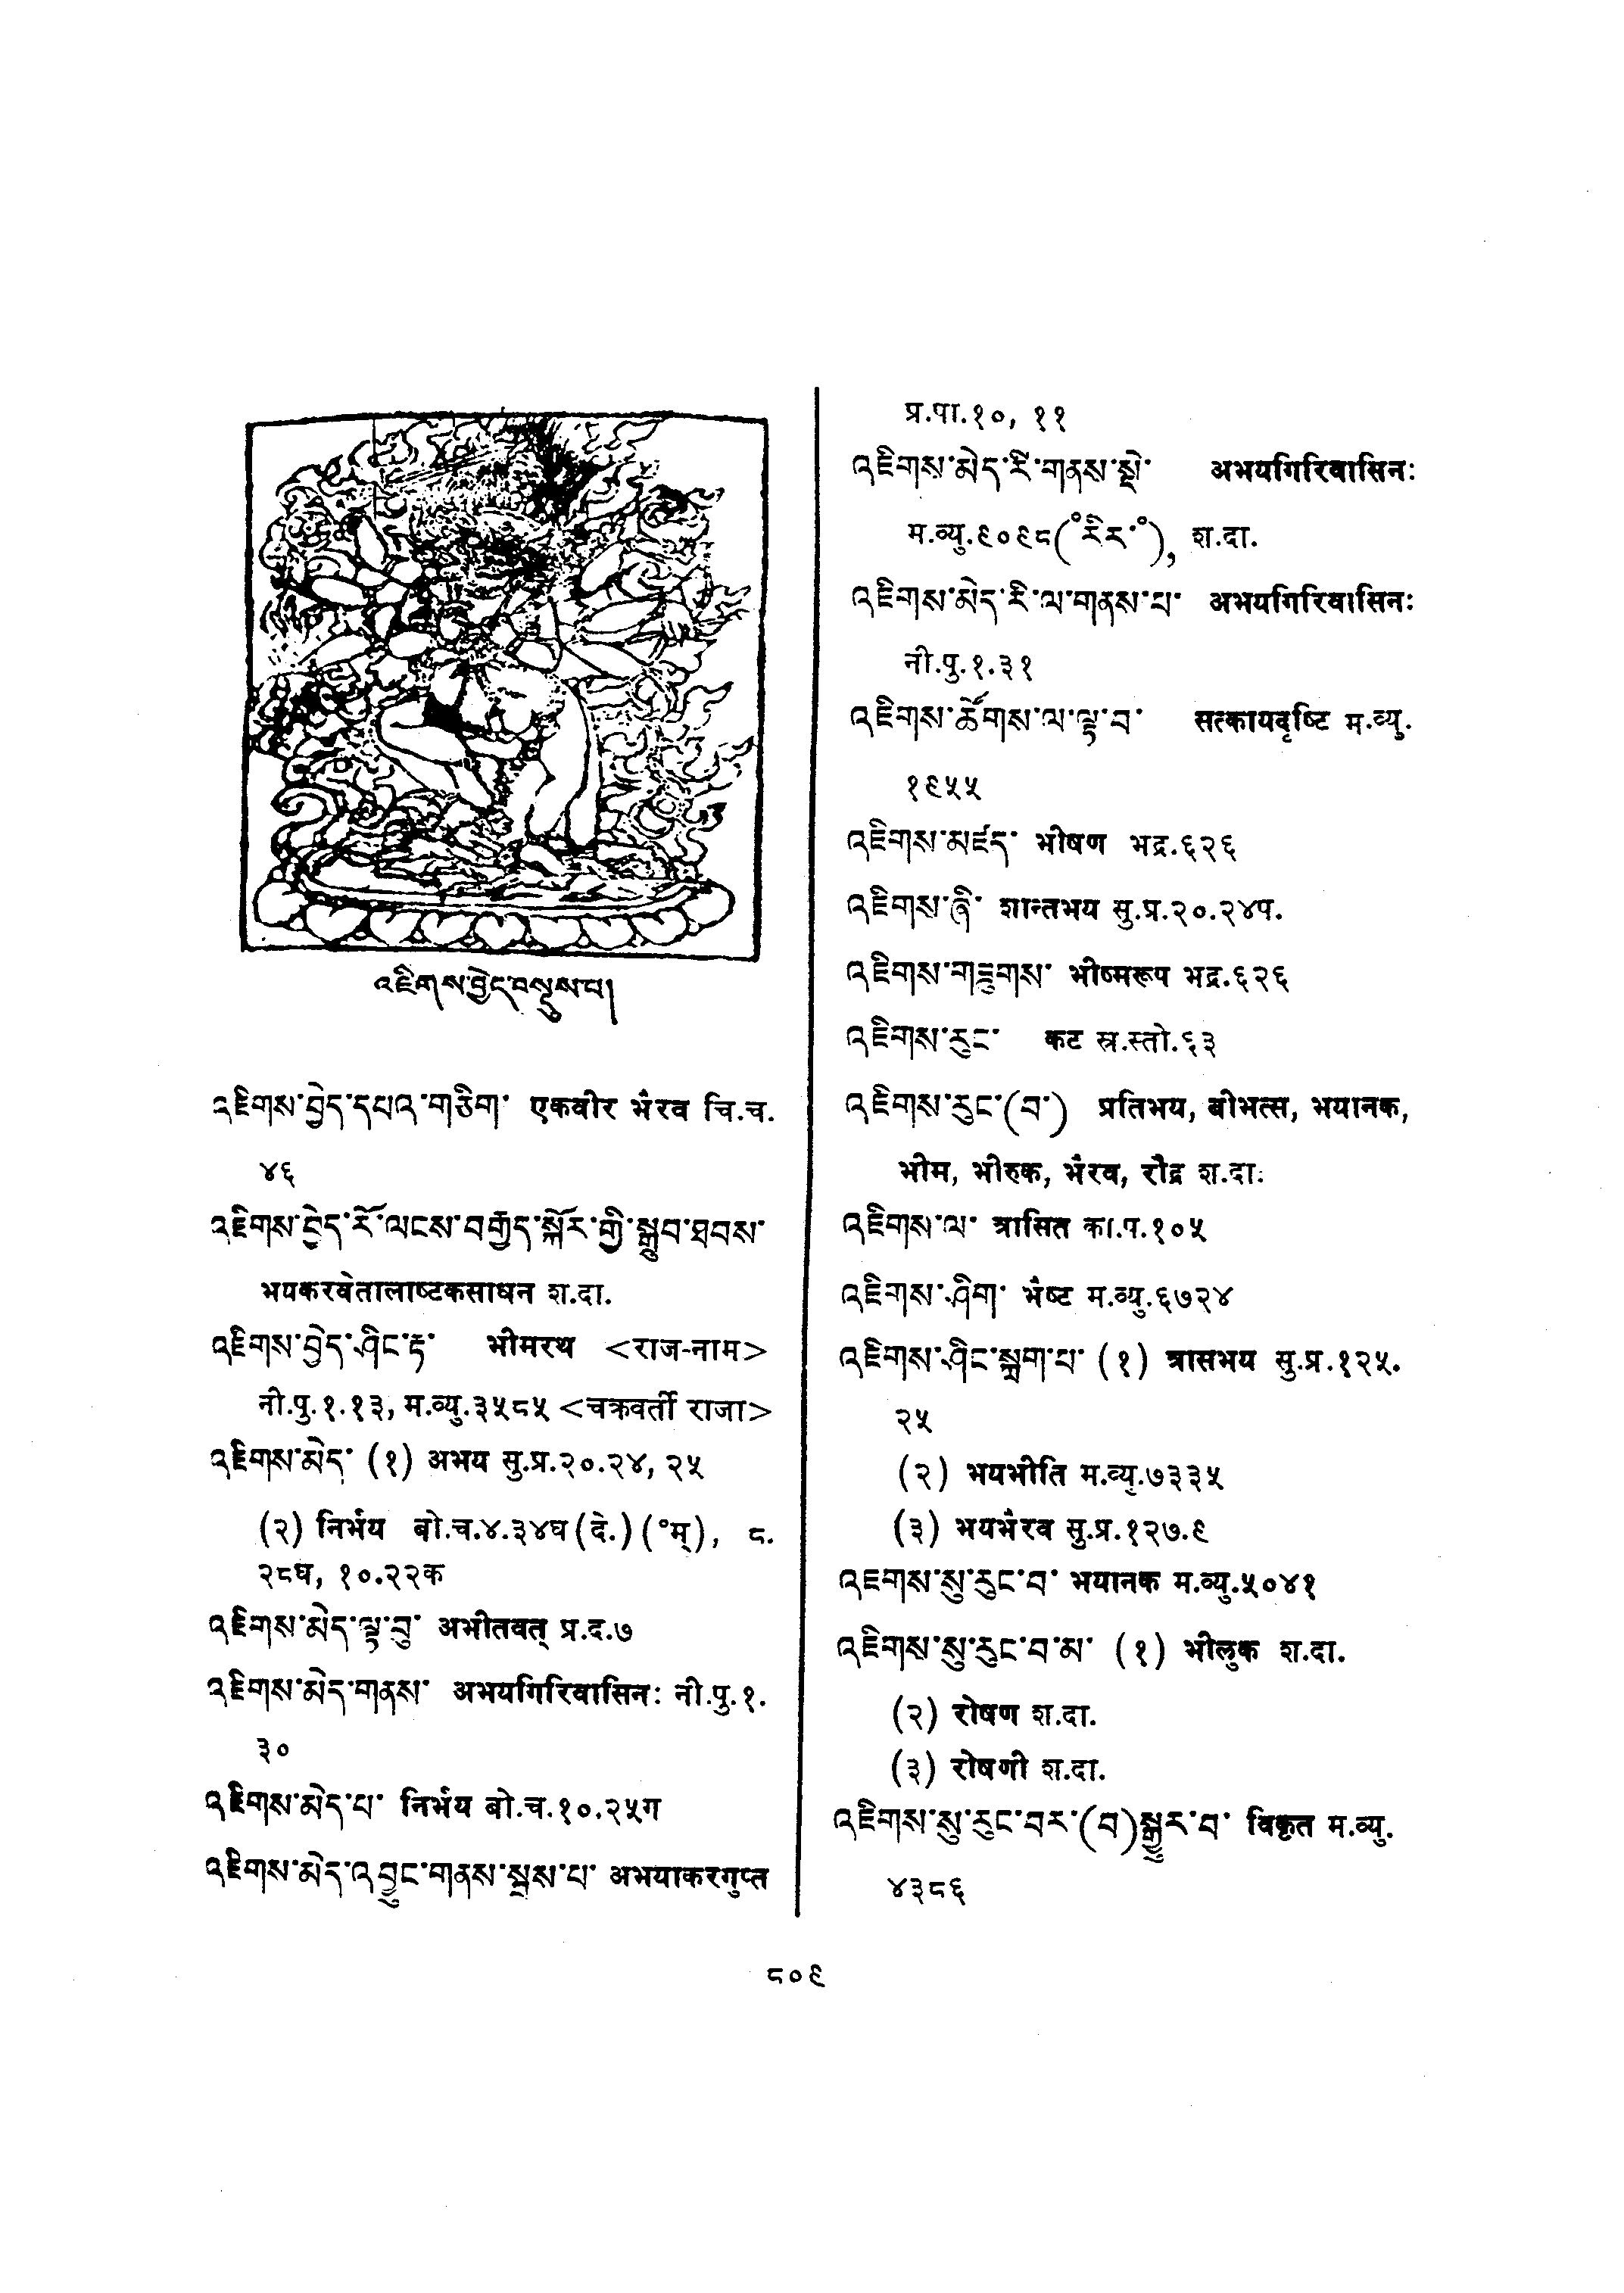 འཇིགས་བྱེད་བསྡུས་པ།
འཇིགས་བྱེད་དཔའ་གཅིག་ एकवीर भैरव चि.च.
४६
འཇིགས་བྱེད་རོ་ལངས་བརྒྱད་སྐོར་གྱི་སྒྲུབ་ཐབས་
भयकरवेतालाष्टकसाधन श.दा.
འཇིགས་བྱེད་ཤིང་རྟ་ भीमरथ <राज-नाम>
नी.पु.१.१३, म.व्यु.३५८५ <चक्रवर्ती राजा>
འཇིགས་མེད་ (१) अभय सु.प्र.२०.२४, २५
(२) निर्भय बो.च.४.३४घ (दे.) (°म्), ८.
२८घ, १०.२२क
འཇིགས་མེད་ལྟ་བུ་ अभीतवत् प्र.द.७
འཇིགས་མེད་གནས་ अभयगिरिवासिनः नी.पु.१.
३०
འཇིགས་མེད་པ་ निर्भय बो.च.१०.२५ग
འཇིགས་མེད་འབྱུང་གནས་སྦས་པ་ अभयाकरगुप्त
प्र.पा.१०, ११
འཇིགས་མེད་རི་གནས་སྡེ་ अभयगिरिवासिनः
म.व्यु.९०९८(°རིར་°), श.दा.
འཇིགས་མེད་རི་ལ་གནས་པ་ अभयगिरिवासिनः
नी.पु.१.३१
འཇིགས་ཚོགས་ལ་ལྟ་བ་ सत्कायदृष्टि म.व्यु.
१९५५
འཇིགས་མཛད་ भीषण भद्र.६२६
འཇིགས་ཞི་ शान्तभय सु.प्र.२०.२४प.
འཇིགས་གཟུགས་ भीष्मरूप भद्र.६२६
འཇིགས་རུང་ कट स्र.स्तो.६३
འཇིགས་རུང་(བ་) प्रतिभय, बीभत्स, भयानक,
भीम, भीरुक, भैरव, रौद्र श.दा.
འཇིགས་ལ་ त्रासित का.प.१०५
འཇིགས་ཤིག་ भैष्ट म.व्यु.६७२४
འཇིགས་ཤིང་སྐྲག་པ་ (१) त्रासभय सु.प्र.१२५.
२५
(२) भयभीति म.व्यु.७३३५
(३) भयभैरव सु.प्र.१२७.९
འཇིགས་སུ་རུང་བ་ भयानक म.व्यु.५०४१
འཇིགས་སུ་རུང་བ་མ་ (१) भीलुक श.दा.
(२) रोषण श.दा.
(३) रोषणी श.दा.
འཇིགས་སུ་རུང་བར་(བ)སྒྱུར་བ་ विकृत म.व्यु.
४३८६
८०९